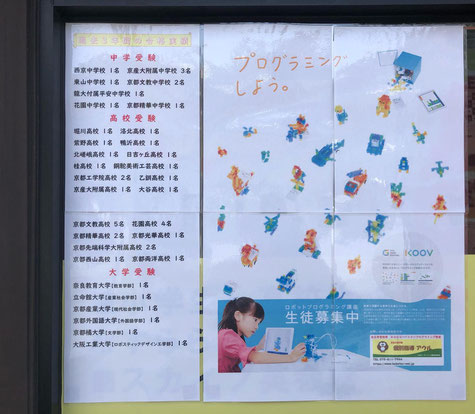 中学受験
西京中学校 1名　京産大附属中学校 3名
東山中学校 1名　京都文教中学校 2名
龍大付属平安中学校 1名
花園中学校 1名　京都精華中学校 1名
高校受験
堀川高校 1名　洛北高校 1名
紫野高校 1名　鴨沂高校 1名
北嵯峨高校 1名　日吉ヶ丘高校 1名
桂高校 1名　銅駝美術工芸高校 1名
京都工学院高校 2名　乙訓高校 1名
京産大附属高校 1名　大谷高校 1名
京都文教高校 5名　花園高校 4名
京都精華高校 2名　京都光華高校 1名
京都先端科学大附属高校 2名
京都西山高校 1名　京都両洋高校 1名
大学受験
奈良教育大学【教育学部】 1名
立命館大学【産業社会学部】 1名
京都産業大学【現代社会学部】 1名
京都外国語大学【外国語学部】 1名
京都橘大学【文学部】 1名
大阪工業大学【ロボティクスデザイン工学部】 1名
プログラミング
しよう。
KOOV
ロボットプログラミング講座
生徒募集中
個別指導 アウル